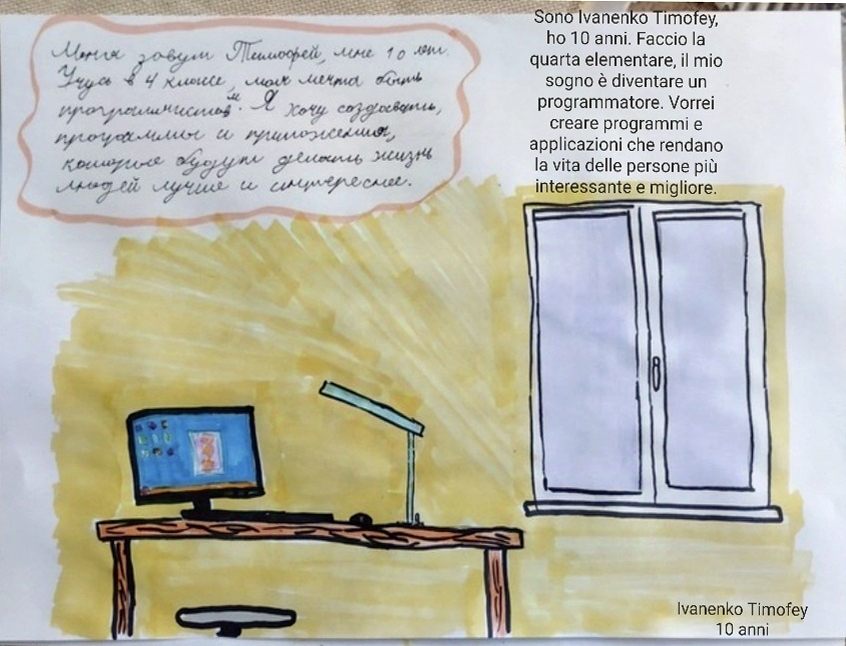 Меня зовут Тимофей, мне 10 лет.
Учусь в 4 классе, моя мечта быть
программистом. Я хочу создавать,
программы и приложения,
которые будут делать жизнь
людей лучше и интереснее.
Sono Ivanenko Timofey,
ho 10 anni. Faccio la
quarta elementare, il mio
sogno è diventare un
programmatore. Vorrei
creare programmi e
applicazioni che rendano
la vita delle persone più
interessante e migliore.
Ivanenko Timofey
10 anni